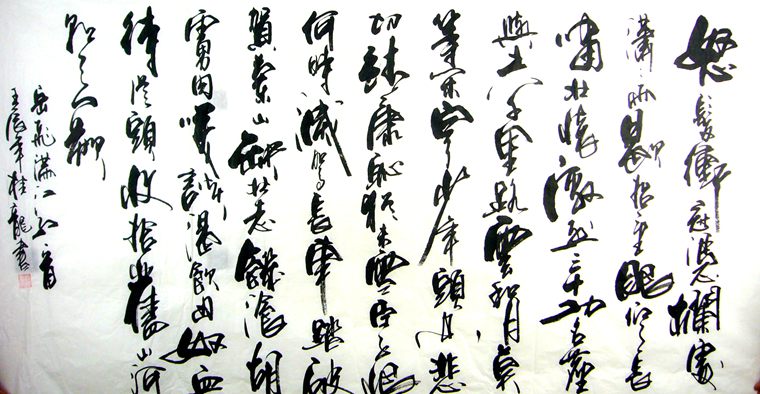 怒髮衝冠憑欄處
瀟瀟雨歇抬望眼仰天長
嘯壯懷激烈三十功名塵
與土八千里路雲和月莫
等閒白了少年頭空悲
切靖康恥猶未雪臣子恨
何時滅駕長車踏破
賀蘭山缺壯志饑飡胡
虜肉笑談渴飲匈奴血
待從頭收拾舊山河
朝天闕
岳飛滿江紅一首
壬辰年桂龍書